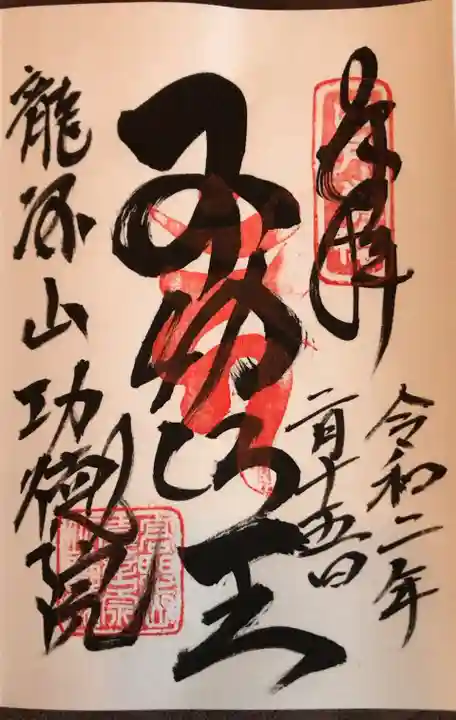 奉拝
令和二年
二月十五日
不動明王
龍源山功徳院